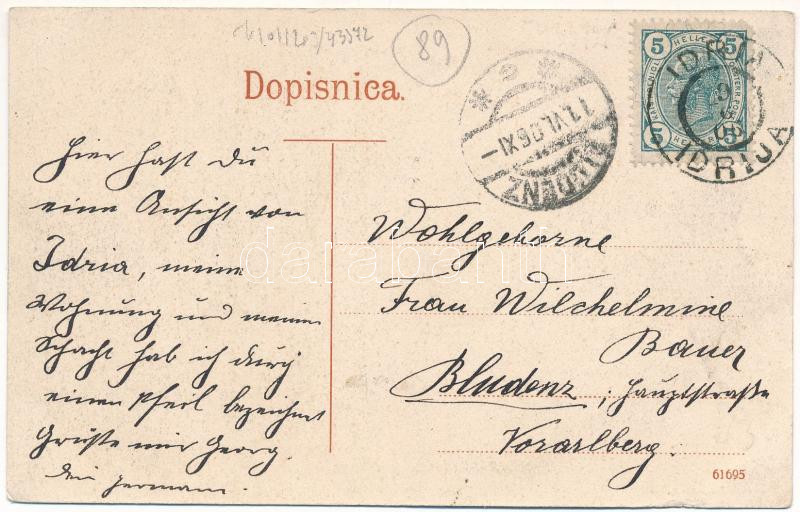 89
Dopisnica.
5 HELLER 5
5 5
IDRIA
9
6
06
IDRIJA
11.VI.06.XI-
BLUDENZ
Hier hast Du
eine Ansicht von
Idria, meine
Wohnung und meinen
Schacht hab ich durch
einen Pfeil bezeichnet
Grüße mir Georg.
Dein Hermann.
Wohlgeborne
Frau Wilchelmine
Bauer
Bludenz, Hauptstraße
Vorarlberg.
61695
darabanth